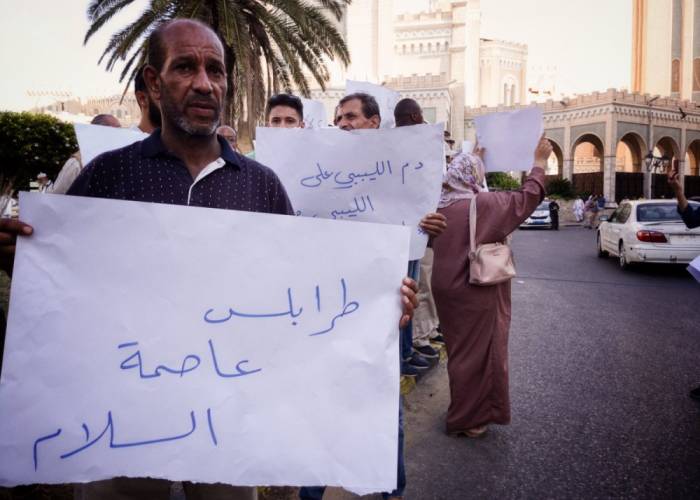 طرابلس
عاصمة
السلام
دم الليبي على
الليبي